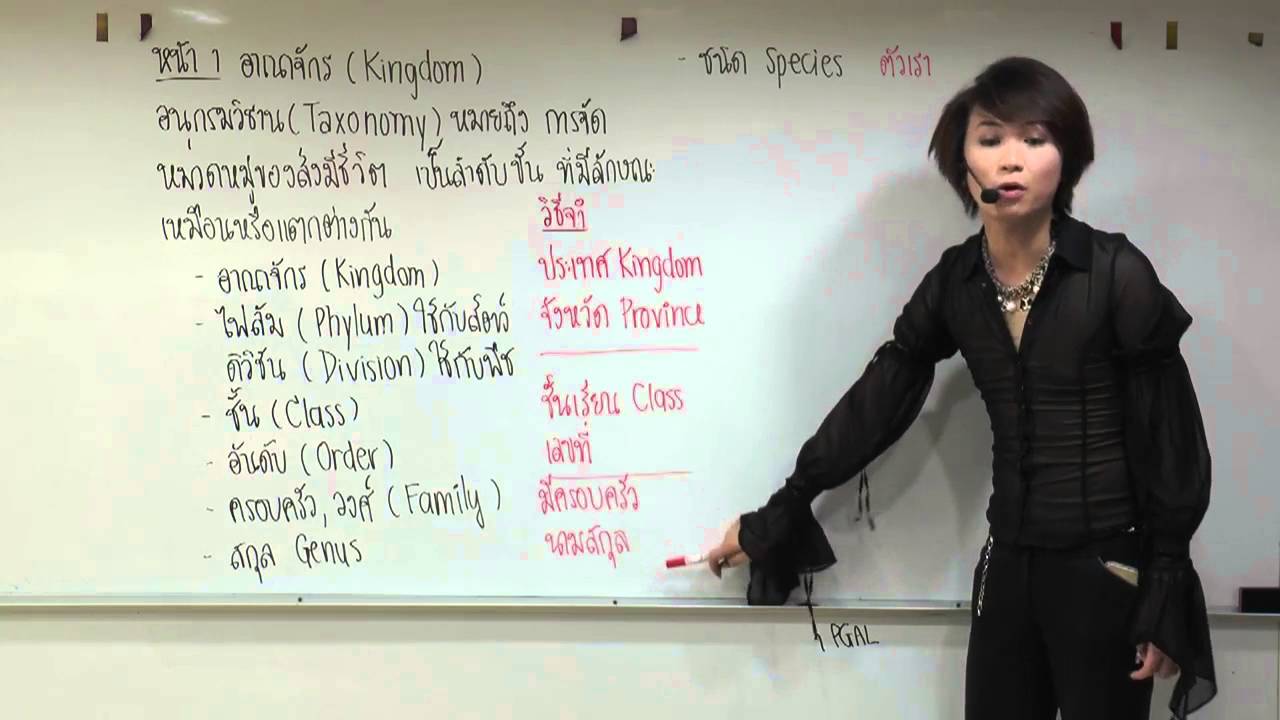 หน้า 1 อาณาจักร (Kingdom)
อนุกรมวิธาน (Taxonomy) หมายถึง การจัด
หมวดหมู่ของสิ่งมีชีวิต เป็นลำดับขั้น ที่มีลักษณะ
เหมือนหรือแตกต่างกัน
- อาณาจักร (Kingdom)
- ไฟลัม (Phylum) ใช้กับสัตว์
ดิวิชัน (Division) ใช้กับพืช
- ชั้น (Class)
- อันดับ (Order)
- ครอบครัว, วงศ์ (Family)
- สกุล Genus
วิธีจำ
ประเทศ Kingdom
จังหวัด Province
ชั้นเรียน Class
เลขที่
มีครอบครัว
นามสกุล
- ชนิด Species ตัวเรา
PGAL